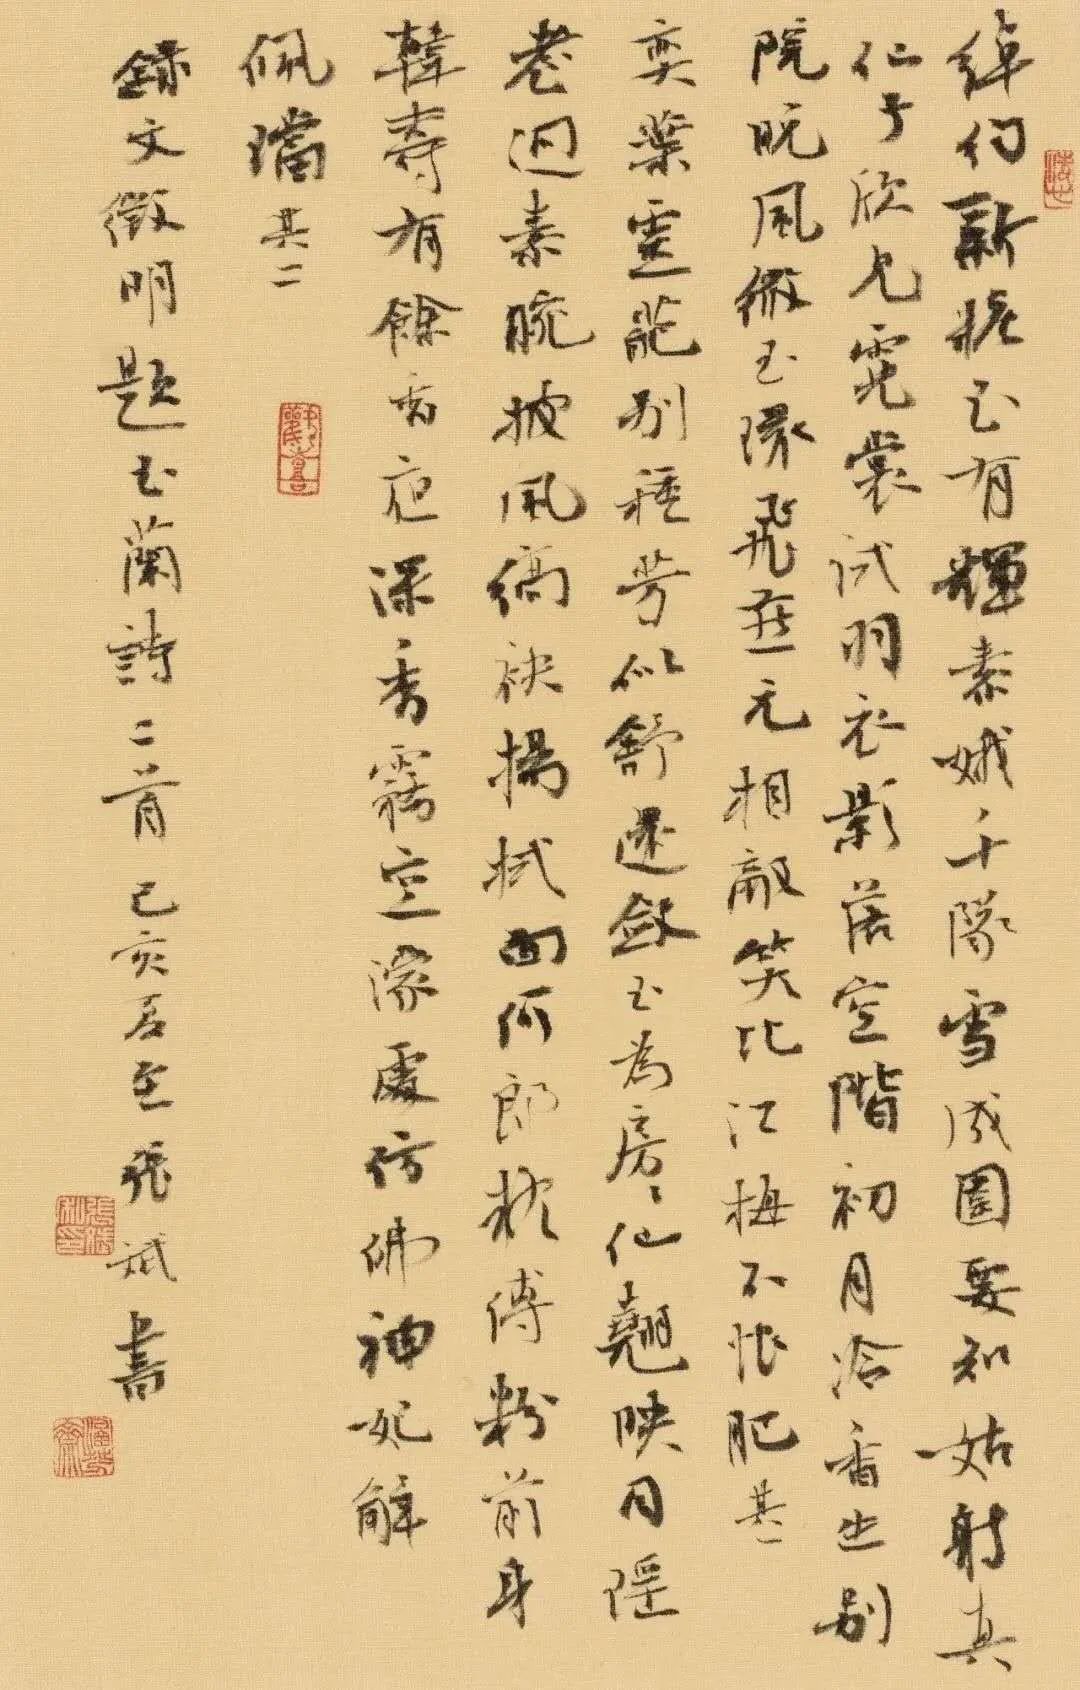 綽約新妝玉有輝素娥千隊雪成圍要知姑射真
仙子欣見霓裳試羽衣影落空階初月冷香生別
院晚風微玉環飛燕元相敵笑比江梅不恨肥其一
奕葉靈葩別種芳似舒還斂玉為房仙翹映月瑤
臺迥素腕披風縞袂揚拭面何郎疑傅粉前身
韓壽有餘香夜深香霧空濛處仿佛神妃解
佩璫其二
錄文徵明題玉蘭詩二首己亥夏至張斌書